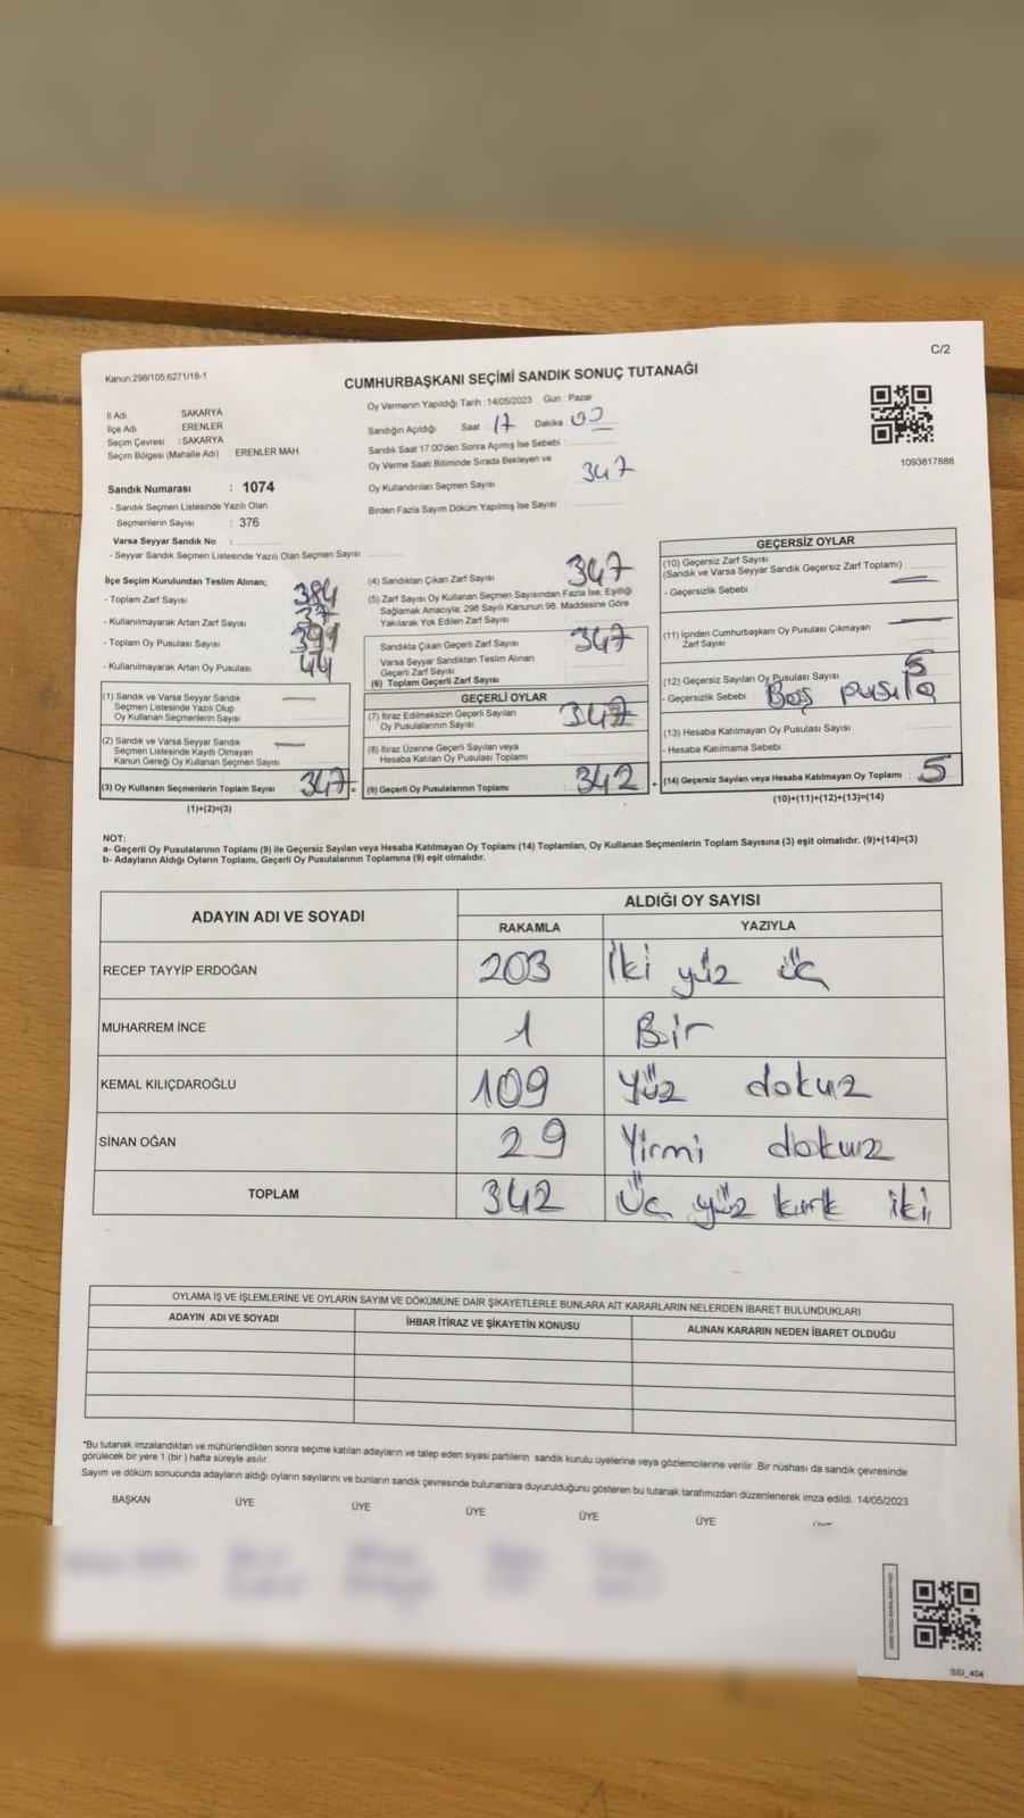 C/2
Kanun:298/105;6271/18-1
CUMHURBAŞKANI SEÇİMİ SANDIK SONUÇ TUTANAĞI
İl Adı SAKARYA
İlçe Adı ERENLER
Seçim Çevresi : SAKARYA
Seçim Bölgesi (Mahalle Adı) ERENLER MAH
Sandık Numarası : 1074
- Sandık Seçmen Listesinde Yazılı Olan
Seçmenlerin Sayısı : 376
Varsa Seyyar Sandık No :
- Seyyar Sandık Seçmen Listesinde Yazılı Olan Seçmen Sayısı
Oy Vermenin Yapıldığı Tarih : 14/05/2023 Gün : Pazar
Sandığın Açıldığı Saat 17 Dakika 00
Sandık Saat 17:00'den Sonra Açmış İse Sebebi :
Oy Verme Saati Bitiminde Sırada Bekleyen ve
Oy Kullandırılan Seçmen Sayısı 347
Birden Fazla Sayım Döküm Yapılmış İse Sayısı
1093817888
İlçe Seçim Kurulundan Teslim Alınan;
- Toplam Zarf Sayısı 384
- Kullanılmayarak Artan Zarf Sayısı 37
- Toplam Oy Pusulası Sayısı 391
- Kullanılmayarak Artan Oy Pusulası 44
(1) Sandık ve Varsa Seyyar Sandık
Seçmen Listesinde Yazılı Olup
Oy Kullanan Seçmenlerin Sayısı
(2) Sandık ve Varsa Seyyar Sandık
Seçmen Listesinde Kayıtlı Olmayan
Kanun Gereği Oy Kullanan Seçmen Sayısı
(3) Oy Kullanan Seçmenlerin Toplam Sayısı 347
(1)+(2)=(3)
(4) Sandıktan Çıkan Zarf Sayısı 347
(5) Zarf Sayısı Oy Kullanan Seçmen Sayısından Fazla İse, Eşitliği
Sağlamak Amacıyla; 298 Sayılı Kanunun 98. Maddesine Göre
Yakılarak Yok Edilen Zarf Sayısı
Sandıkta Çıkan Geçerli Zarf Sayısı 347
Varsa Seyyar Sandıktan Teslim Alınan
Geçerli Zarf Sayısı
(6) Toplam Geçerli Zarf Sayısı
GEÇERLİ OYLAR
(7) İtiraz Edilmeksizin Geçerli Sayılan
Oy Pusulalarının Sayısı
(8) İtiraz Üzerine Geçerli Sayılan veya
Hesaba Katılan Oy Pusulası Toplamı
(9) Geçerli Oy Pusulalarının Toplamı 342
GEÇERSİZ OYLAR
(10) Geçersiz Zarf Sayısı
(Sandık ve Varsa Seyyar Sandık Geçersiz Zarf Toplamı)
- Geçersizlik Sebebi
(11) İçinden Cumhurbaşkanı Oy Pusulası Çıkmayan
Zarf Sayısı
(12) Geçersiz Sayılan Oy Pusulası Sayısı 5
- Geçersizlik Sebebi Boş pusula
(13) Hesaba Katılmayan Oy Pusulası Sayısı
- Hesaba Katılmama Sebebi
(14) Geçersiz Sayılan veya Hesaba Katılmayan Oy Toplamı 5
(10)+(11)+(12)+(13)=(14)
NOT:
a- Geçerli Oy Pusulalarının Toplamı (9) ile Geçersiz Sayılan veya Hesaba Katılmayan Oy Toplamı (14) Toplamları, Oy Kullanan Seçmenlerin Toplam Sayısına (3) eşit olmalıdır. (9)+(14)=(3)
b- Adayların Aldığı Oyların Toplamı, Geçerli Oy Pusulalarının Toplamına (9) eşit olmalıdır.
ADAYIN ADI VE SOYADI
ALDIĞI OY SAYISI
RAKAMLA YAZIYLA
RECEP TAYYİP ERDOĞAN 203 İki yüz üç
MUHARREM İNCE 1 Bir
KEMAL KILIÇDAROĞLU 109 Yüz dokuz
SİNAN OĞAN 29 Yirmi dokuz
TOPLAM 342 Üç yüz kırk iki
OYLAMA İŞ VE İŞLEMLERİNE VE OYLARIN SAYIM VE DÖKÜMÜNE DAİR ŞİKAYETLERLE BUNLARA AİT KARARLARIN NELERDEN İBARET BULUNDUKLARI
ADAYIN ADI VE SOYADI İHBAR İTİRAZ VE ŞİKAYETİN KONUSU ALINAN KARARIN NEDEN İBARET OLDUĞU
*Bu tutanak imzalandıktan ve mühürlendikten sonra seçime katılan adayların ve talep eden siyasi partilerin sandık kurulu üyelerine veya gözlemcilerine verilir. Bir nüshası da sandık çevresinde
görülecek bir yere 1 (bir) hafta süreyle asılır.
Sayım ve döküm sonucunda adayların aldığı oyların sayılarını ve bunların sandık çevresinde bulunanlara duyurulduğunu gösteren bu tutanak tarafımızdan düzenlenerek imza edildi. 14/05/2023
BAŞKAN ÜYE ÜYE ÜYE ÜYE ÜYE